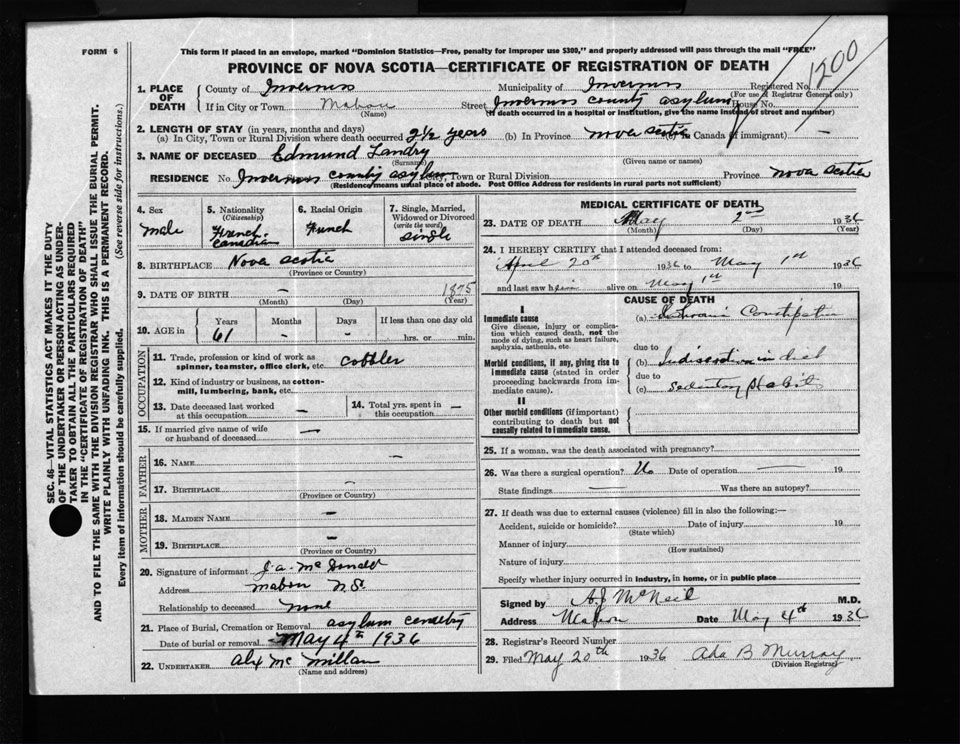 FORM 6
This form if placed in an envelope, marked "Dominion Statistics—Free, penalty for improper use $300," and properly addressed will pass through the mail "FREE"
PROVINCE OF NOVA SCOTIA—CERTIFICATE OF REGISTRATION OF DEATH
1200
SEC. 46—VITAL STATISTICS ACT MAKES IT THE DUTY
OF THE UNDERTAKER OR PERSON ACTING AS UNDER-
TAKER TO OBTAIN ALL THE PARTICULARS REQUIRED
IN THE "CERTIFICATE OF REGISTRATION OF DEATH"
AND TO FILE THE SAME WITH THE DIVISION REGISTRAR WHO SHALL ISSUE THE BURIAL PERMIT.
WRITE PLAINLY WITH UNFADING INK. THIS IS A PERMANENT RECORD.
Every item of information should be carefully supplied. (See reverse side for instructions.)
1. PLACE OF DEATH
County of Inverness Municipality of Inverness Registered No.
(For use of Registrar General only)
If in City or Town Mabou Street Inverness county asylum House No.
(Name) (If death occurred in a hospital or institution, give the name instead of street and number)
2. LENGTH OF STAY (in years, months and days)
(a) In City, Town or Rural Division where death occurred 2½ years (b) In Province Nova Scotia (c) In Canada (if immigrant) —
3. NAME OF DECEASED Edmund Landry
(Surname) (Given name or names)
RESIDENCE No. Inverness county asylum City, Town or Rural Division Province Nova Scotia
(Residence means usual place of abode. Post Office Address for residents in rural parts not sufficient)
4. Sex
male
5. Nationality
(Citizenship)
French Canadian
6. Racial Origin
French
7. Single, Married, Widowed or Divorced
(write the word)
single
8. BIRTHPLACE Nova Scotia
(Province or Country)
9. DATE OF BIRTH — 1875
(Month) (Day) (Year)
10. AGE in
Years Months Days If less than one day old
61 - - hrs. or min.
OCCUPATION
11. Trade, profession or kind of work as cobbler
spinner, teamster, office clerk, etc.
12. Kind of industry or business, as cotton-
mill, lumbering, bank, etc.
13. Date deceased last worked at this occupation —
14. Total yrs. spent in this occupation —
15. If married give name of wife
or husband of deceased —
FATHER
16. NAME —
17. BIRTHPLACE —
(Province or Country)
MOTHER
18. MAIDEN NAME —
19. BIRTHPLACE —
(Province or Country)
20. Signature of informant J. a. McDonald
Address mabou N.S.
Relationship to deceased none
21. Place of Burial, Cremation or Removal asylum cemetery
Date of burial or removal May 4th 1936
22. UNDERTAKER Alex McMillan
(Name and address)
MEDICAL CERTIFICATE OF DEATH
23. DATE OF DEATH May 2nd 1936
(Month) (Day) (Year)
24. I HEREBY CERTIFY that I attended deceased from:
April 20th 1936 to May 1st 1936
and last saw him alive on May 1st 19
CAUSE OF DEATH
I
Immediate cause
Give disease, injury or complica-
tion which caused death, not the
mode of dying, such as heart failure,
asphyxia, asthenia, etc.
(a) Constipation
due to
Morbid conditions, if any, giving rise to
immediate cause (stated in order
proceeding backwards from im-
mediate cause).
(b) Indiscretion in diet
due to
(c) sedentary habit
II
Other morbid conditions (if important)
contributing to death but not
causally related to immediate cause.
25. If a woman, was the death associated with pregnancy?
26. Was there a surgical operation? No Date of operation — 19
State findings — Was there an autopsy?
27. If death was due to external causes (violence) fill in also the following:—
Accident, suicide or homicide? Date of injury 19
(State which)
Manner of injury
(How sustained)
Nature of injury
Specify whether injury occurred in industry, in home, or in public place
Signed by A.J. McNeil M.D.
Address Mabou Date May 4th 1936
28. Registrar's Record Number
29. Filed May 20th 1936 Ada B Murray
(Division Registrar)